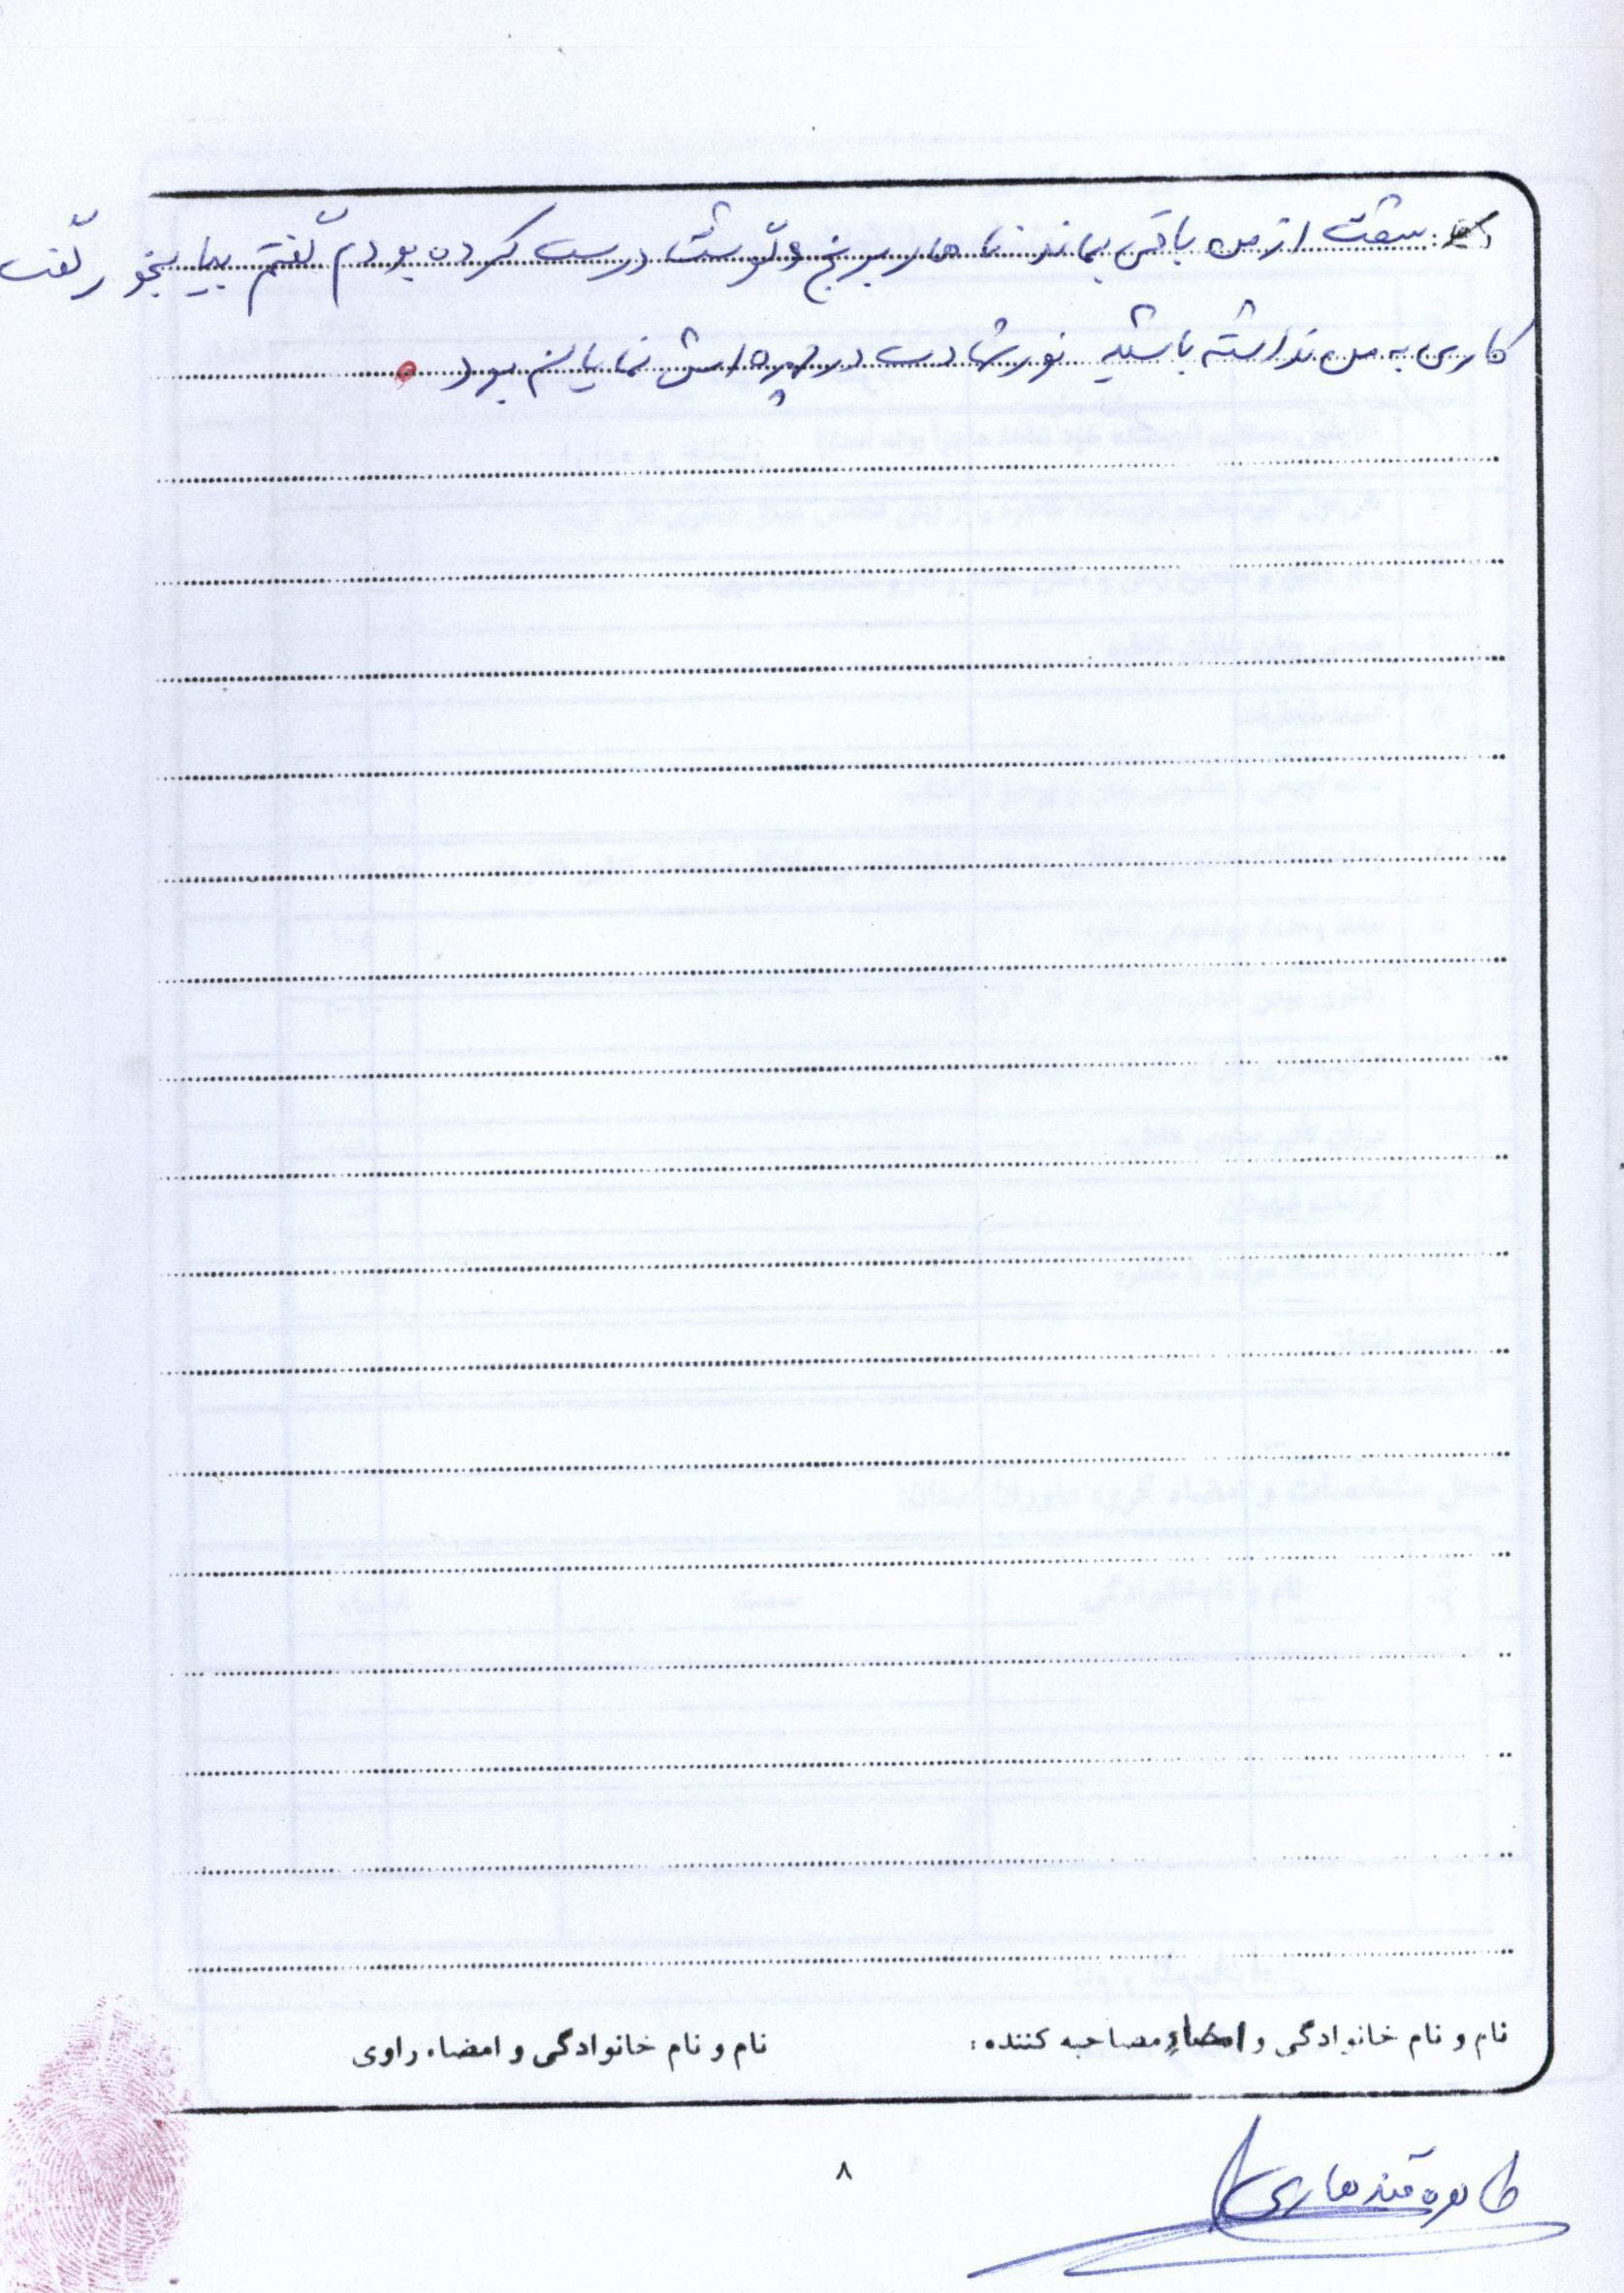 سقت از من باقی بماند ناهار برنج و گوشت درست کرده بودم گفتم بیا بخور گفت
کاری به من نداشته باشید نور شهادت در چهره اش نمایان بود.
نام و نام خانوادگی و امضاء مصاحبه کننده:
نام و نام خانوادگی و امضاء راوی
۸
طاهره قندهاری